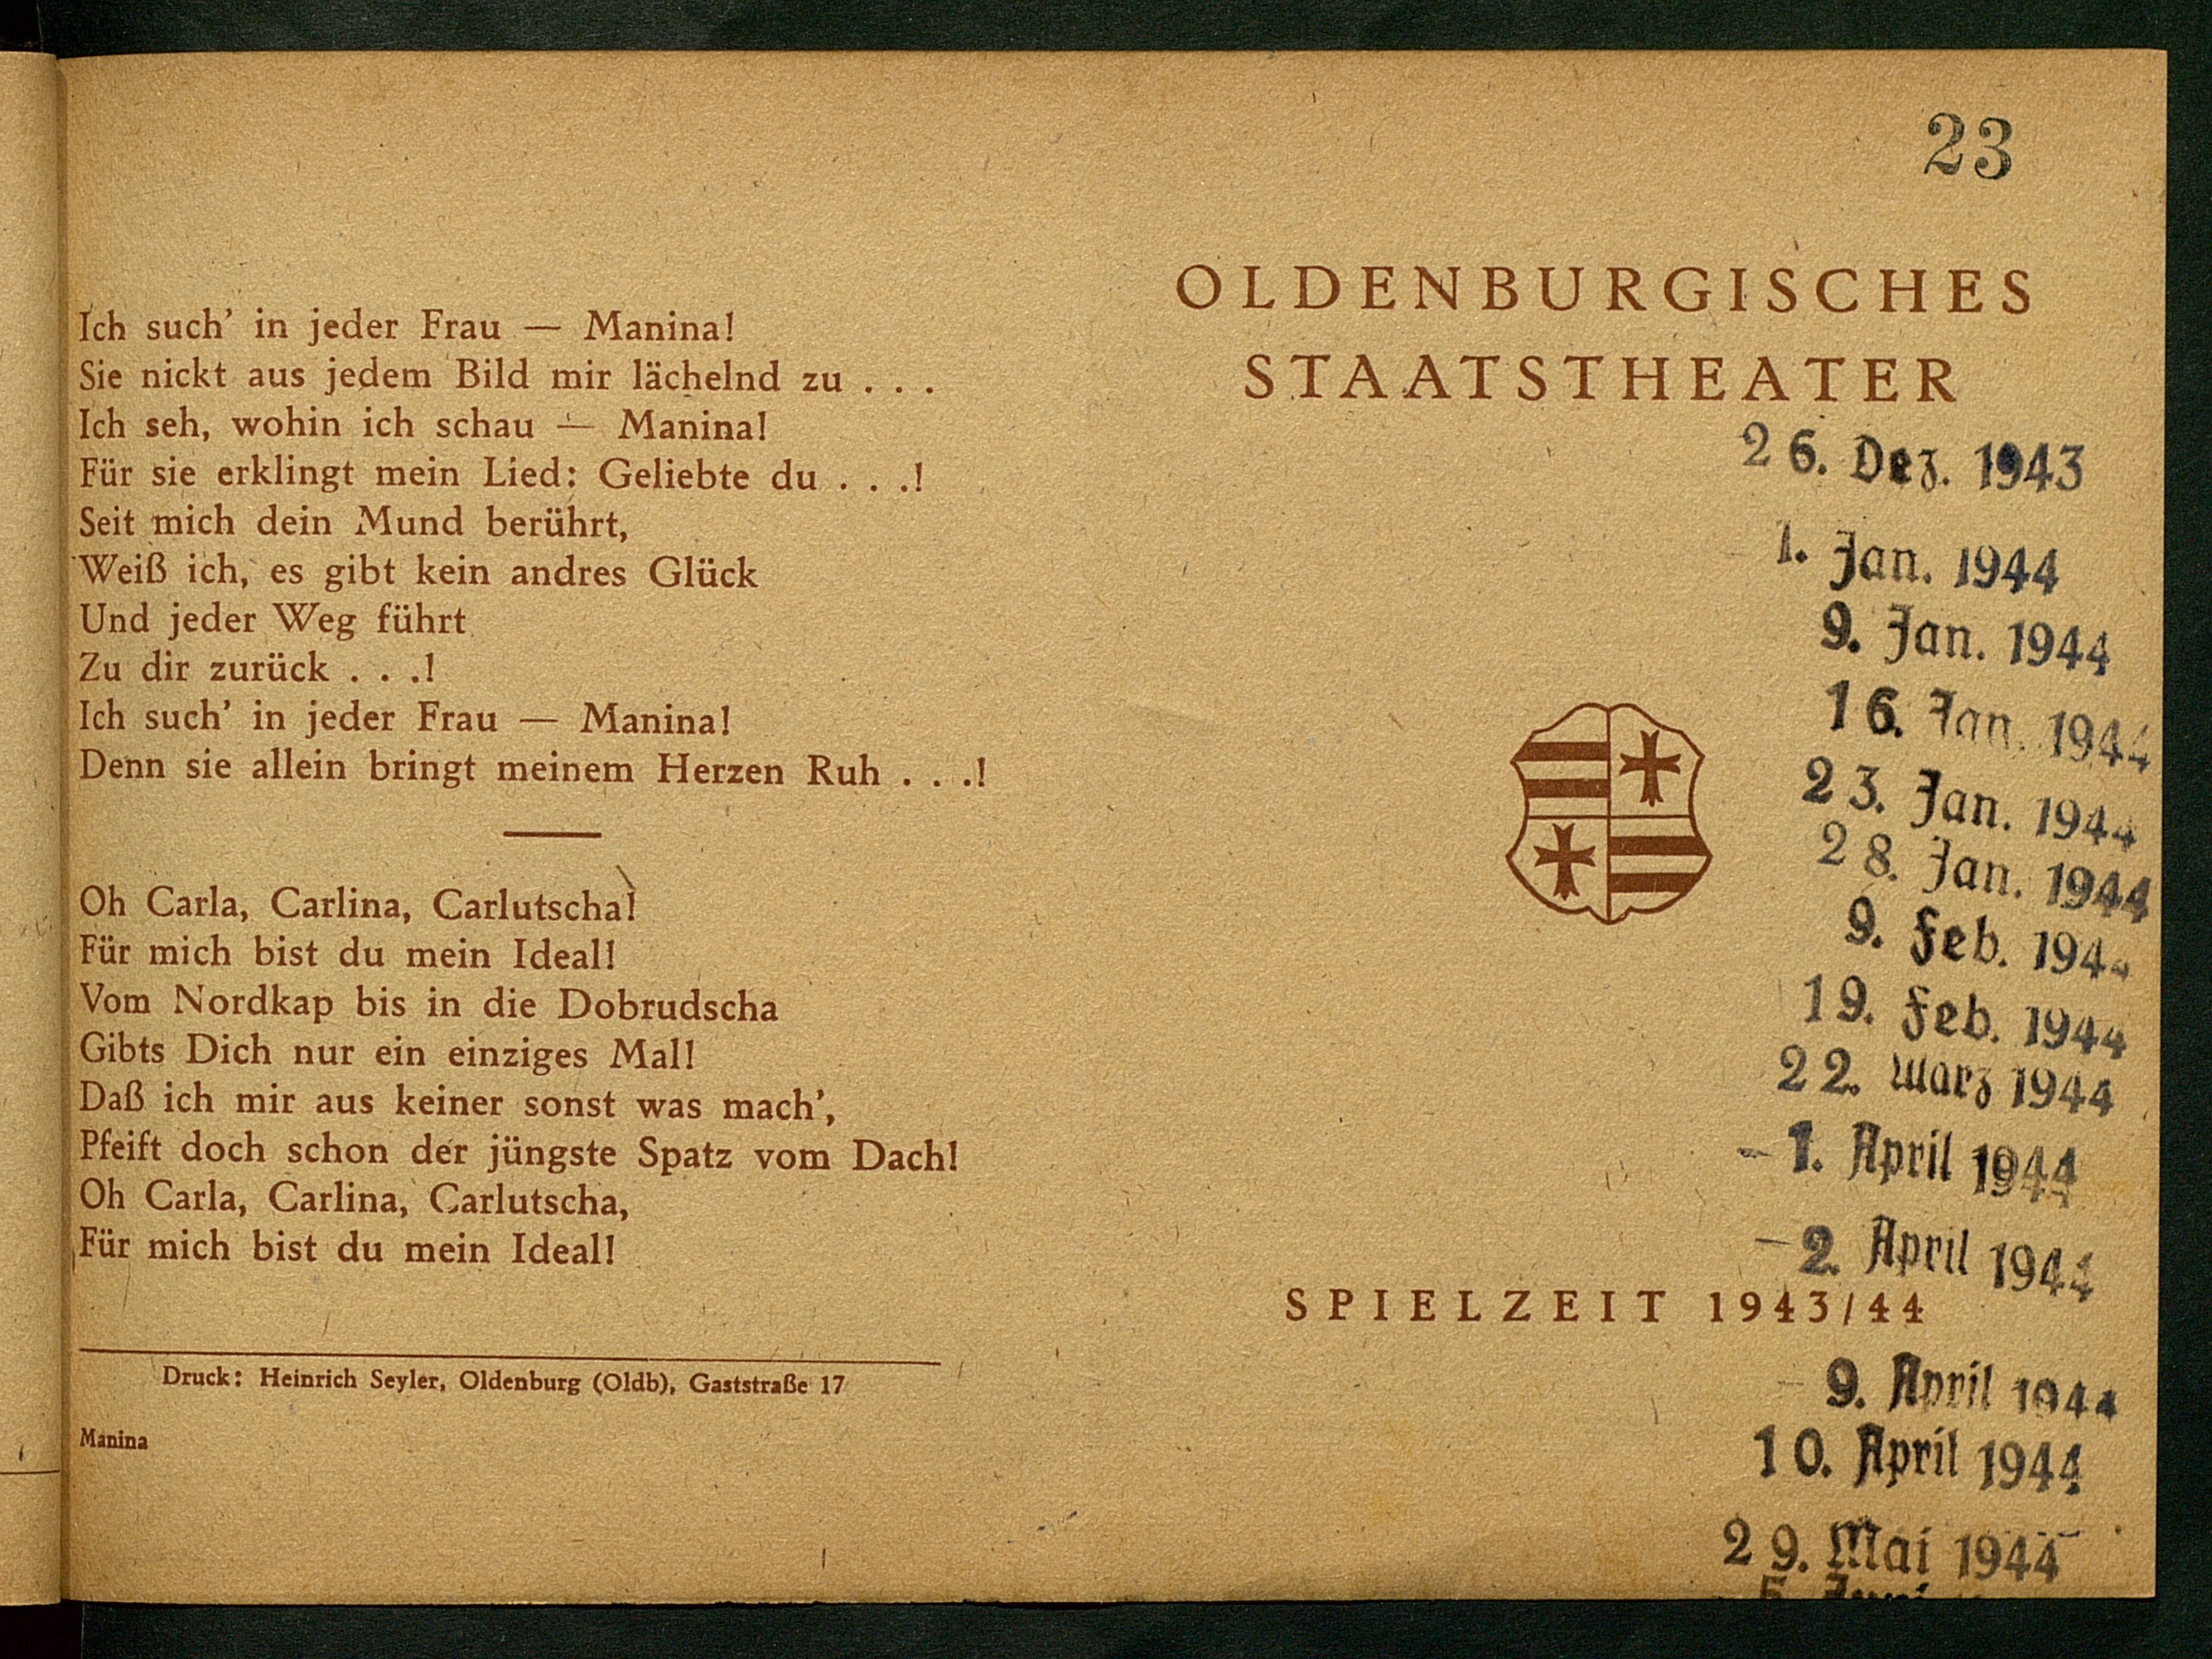 Ich such’ in jeder Frau — Manina!
Sie nickt aus jedem Bild mir lächelnd zu . . .
Ich seh, wohin ich schau — Manina!
Für sie erklingt mein Lied: Geliebte du . . .!
Seit mich dein Mund berührt,
Weiß ich, es gibt kein andres Glück
Und jeder Weg führt
Zu dir zurück . . .!
Ich such’ in jeder Frau — Manina!
Denn sie allein bringt meinem Herzen Ruh . . .!
Oh Carla, Carlina, Carlutscha!
Für mich bist du mein Ideal!
Vom Nordkap bis in die Dobrudscha
Gibts Dich nur ein einziges Mal!
Daß ich mir aus keiner sonst was mach’,
Pfeift doch schon der jüngste Spatz vom Dach!
Oh Carla, Carlina, Carlutscha,
Für mich bist du mein Ideal!
Druck: Heinrich Seyler, Oldenburg (Oldb), Gaststraße 17
Manina
23
OLDENBURGISCHES
STAATSTHEATER
26. Dez. 1943
1. Jan. 1944
9. Jan. 1944
16. Jan. 1944
23. Jan. 1944
28. Jan. 1944
9. Feb. 1944
19. Feb. 1944
22. März 1944
- 1. April 1944
- 2. April 1944
SPIELZEIT 1943/44
- 9. April 1944
10. April 1944
29. Mai 1944